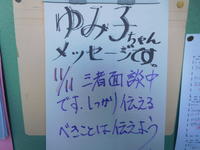 ゆみ子ちゃん
メッセージです。
11/11 三者面談中
です。しっかり伝える
べきことは伝えよう